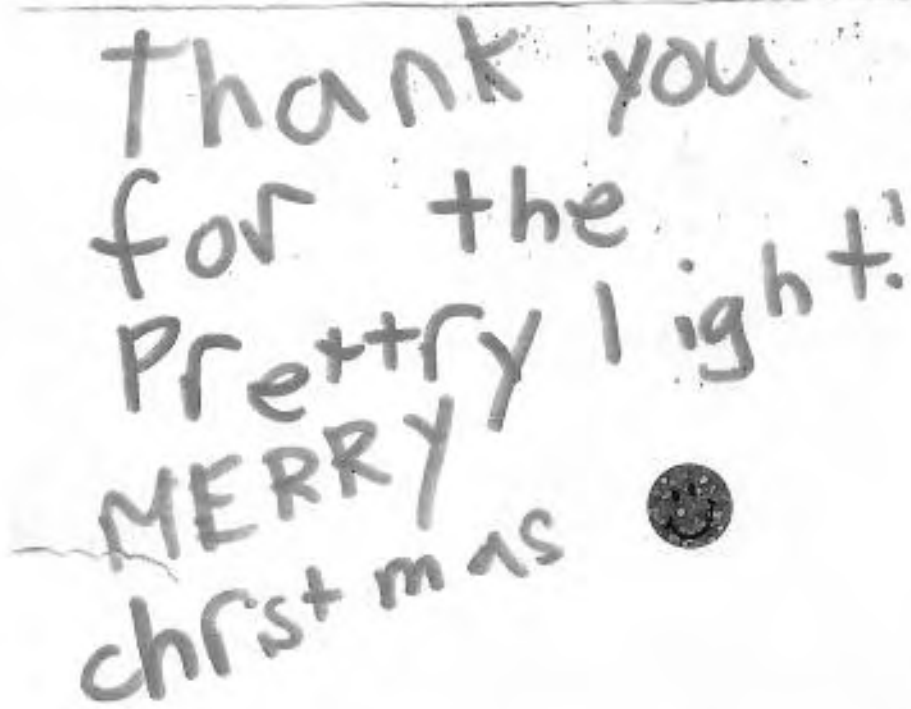 Thank you
for the
Prettry light!
MERRY
christmas